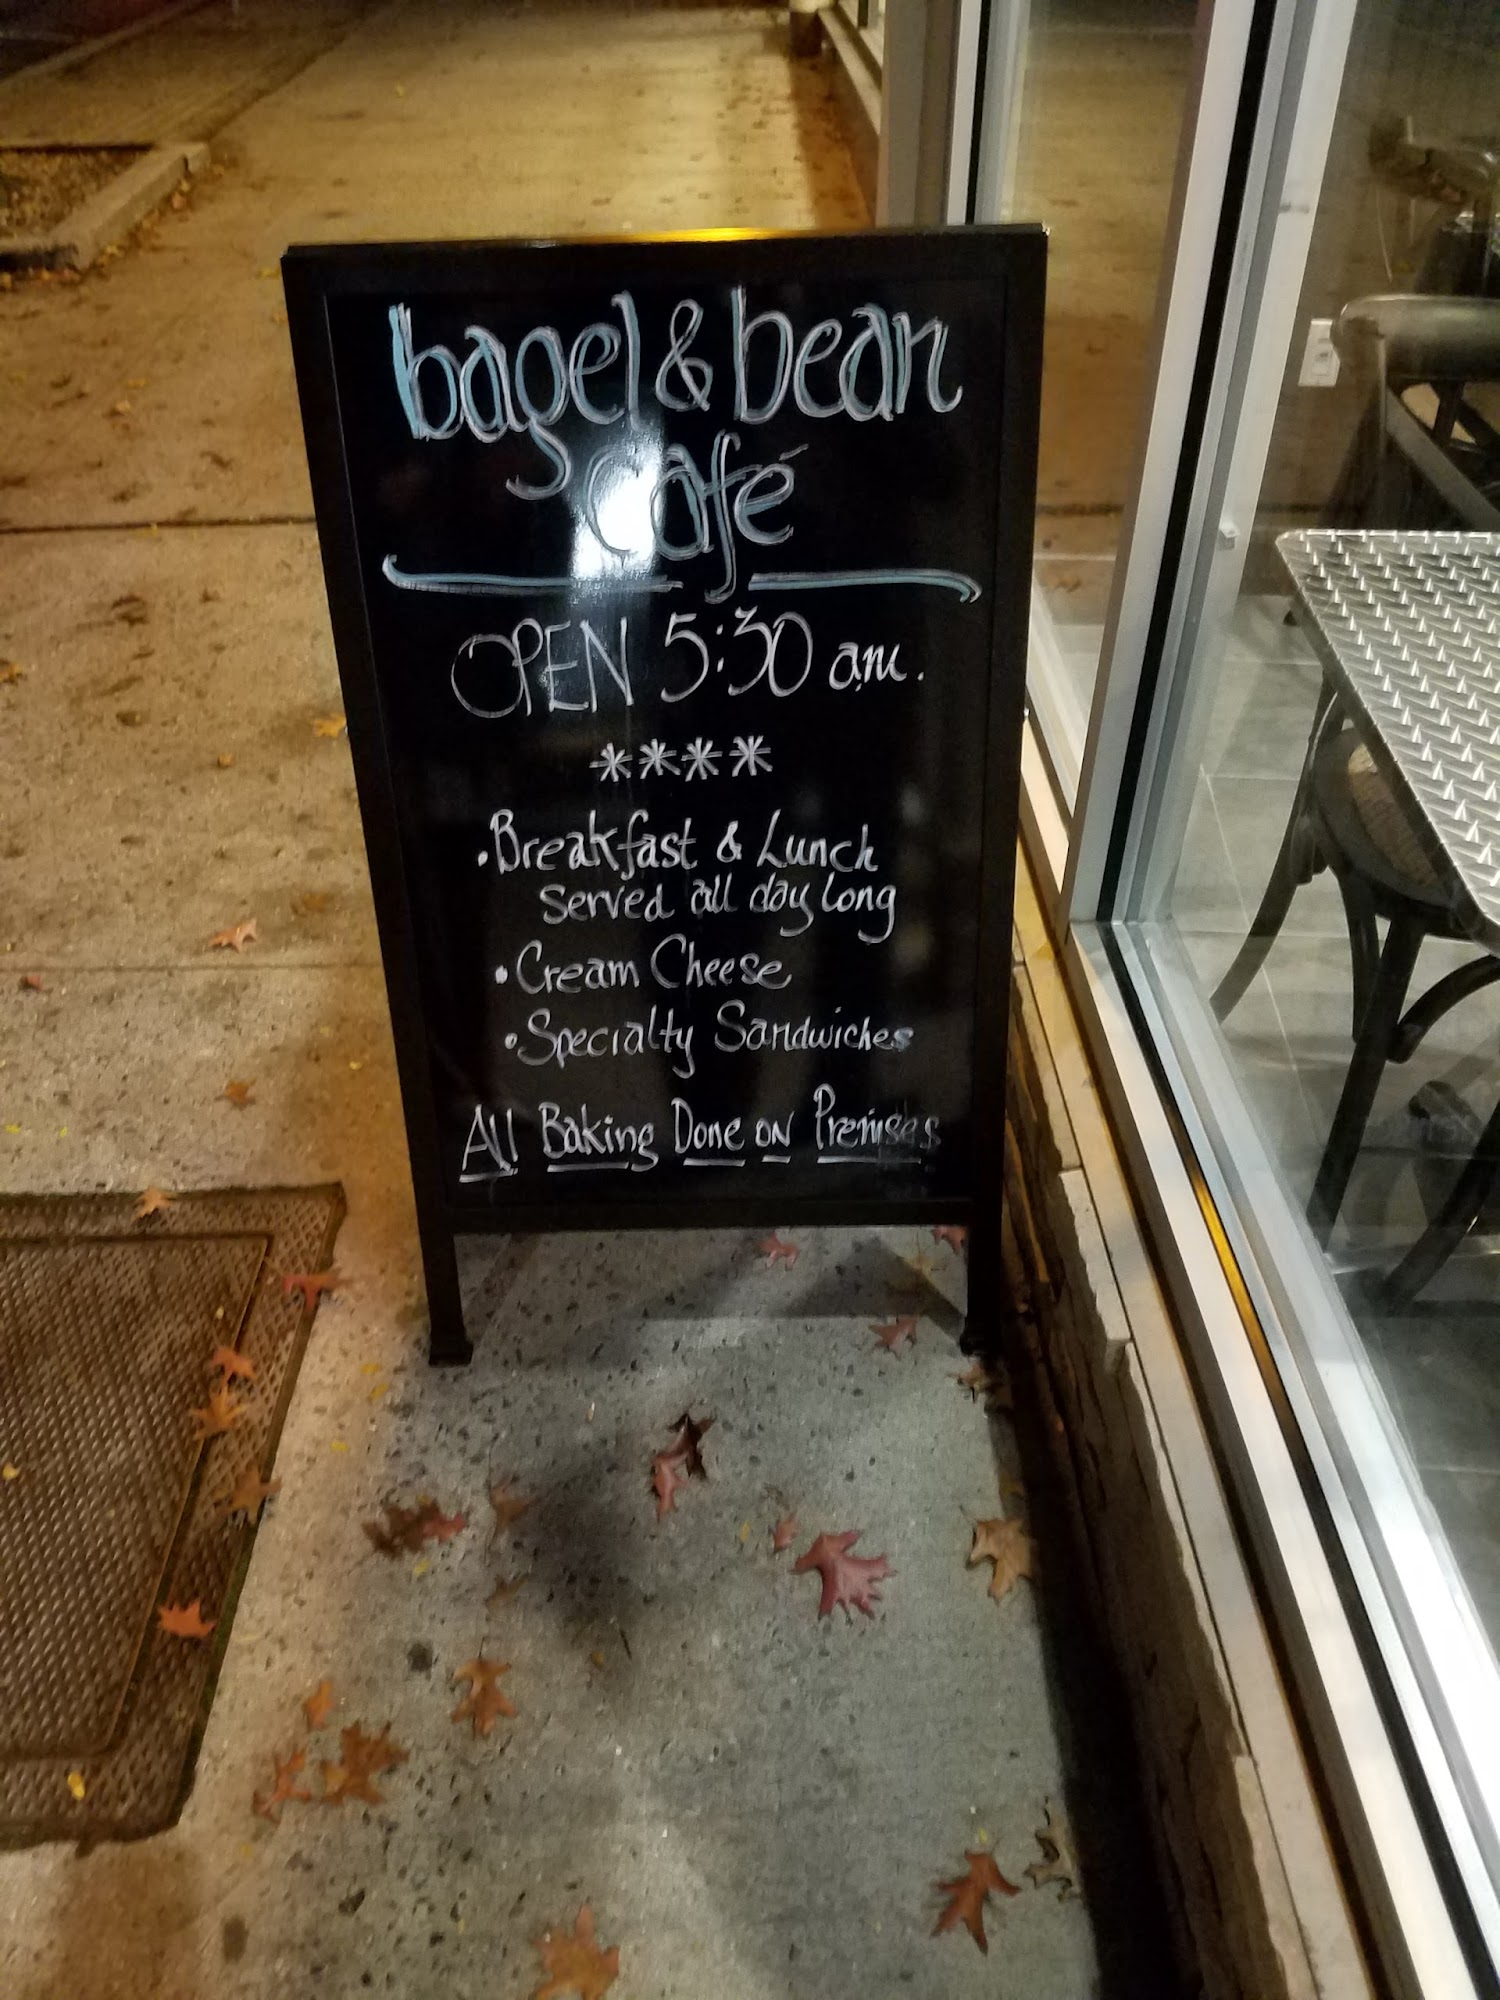 bagel & bean
café
OPEN 5:30 a.m.
****
• Breakfast & Lunch
served all day long
• Cream Cheese
• Specialty Sandwiches
All Baking Done on Premises